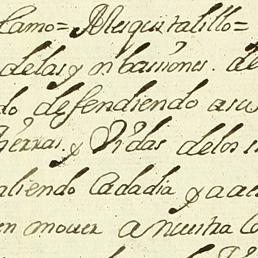 lamo= Mesquitalillo=
delas ynbasiones. de
do defendiendo asu
tierras, y Vidas delos
aliendo Cadadia y
en mover anuestra